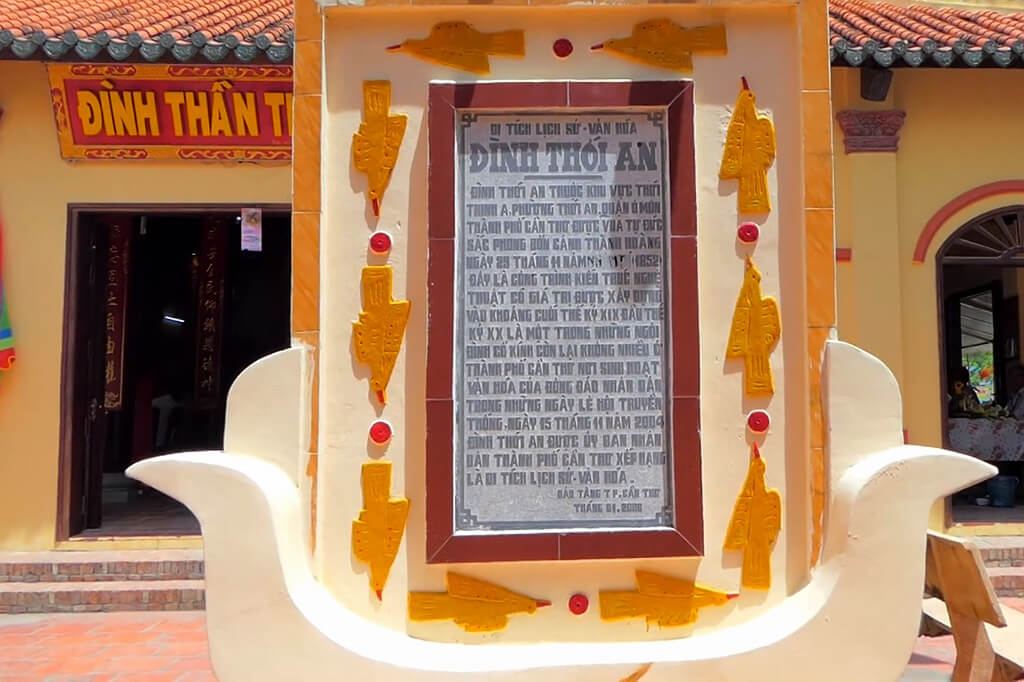 ĐÌNH THẦN T
DI TÍCH LỊCH SỬ - VĂN HÓA
ĐÌNH THỚI AN
ĐÌNH THỚI AN THUỘC KHU VỰC THỚI
TRINH A, PHƯỜNG THỚI AN, QUẬN Ô MÔN
THÀNH PHỐ CẦN THƠ ĐƯỢC VUA TỰ ĐỨC
SẮC PHONG BỔN CẢNH THÀNH HOÀNG
NGÀY 29 THÁNG 11 NĂM 1852
ĐÂY LÀ CÔNG TRÌNH KIẾN TRÚC NGHỆ
THUẬT CÓ GIÁ TRỊ ĐƯỢC XÂY DỰNG
VÀO KHOẢNG CUỐI THẾ KỶ XIX ĐẦU THẾ
KỶ XX LÀ MỘT TRONG NHỮNG NGÔI
ĐÌNH CỔ KÍNH CÒN LẠI KHÔNG NHIỀU Ở
THÀNH PHỐ CẦN THƠ NƠI SINH HOẠT
VĂN HÓA CỦA ĐÔNG ĐẢO NHÂN DÂN
TRONG NHỮNG NGÀY LỄ HỘI TRUYỀN
THỐNG. NGÀY 15 THÁNG 11 NĂM 2004
ĐÌNH THỚI AN ĐƯỢC ỦY BAN NHÂN
DÂN THÀNH PHỐ CẦN THƠ XẾP HẠNG
LÀ DI TÍCH LỊCH SỬ - VĂN HÓA.
BẢO TÀNG TP. CẦN THƠ
THÁNG 01.2006